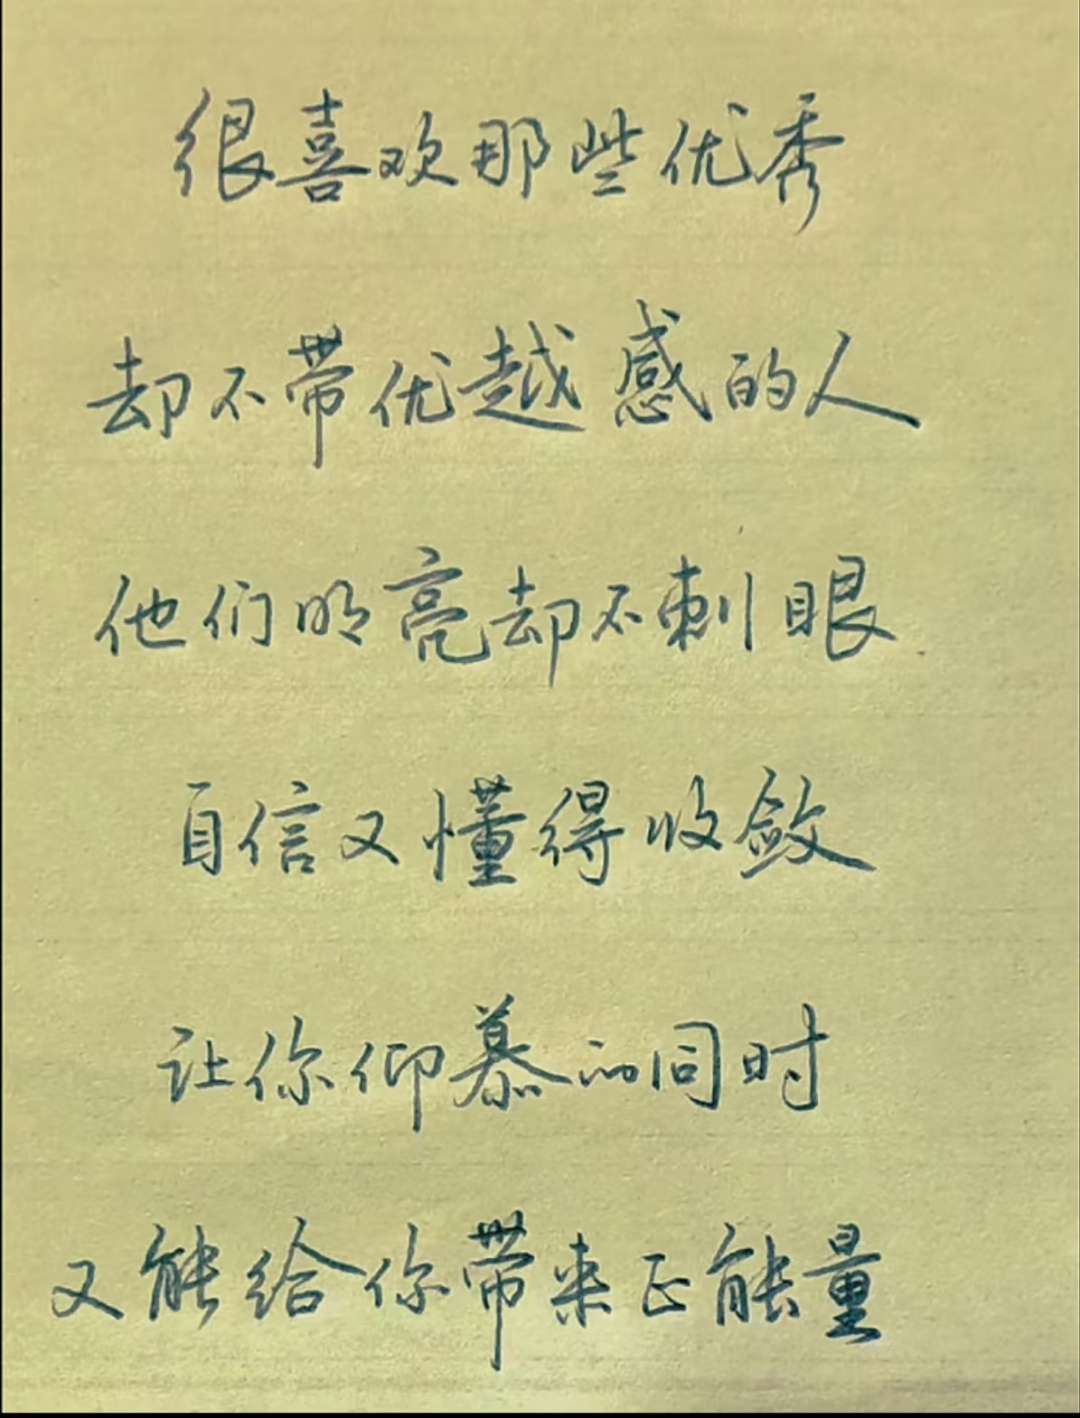 很喜欢那些优秀
却不带优越感的人
他们明亮却不刺眼
自信又懂得收敛
让你仰慕的同时
又能给你带来正能量